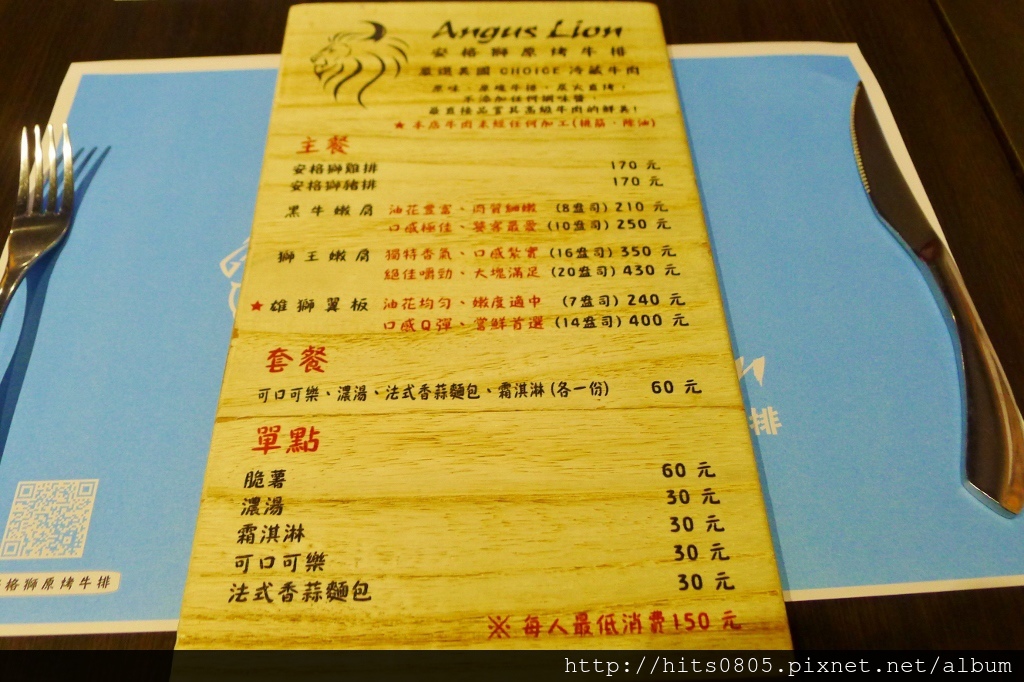 Angus Lion
安格獅原烤牛排
嚴選美國 CHOICE 冷藏牛肉
原味，原塊牛排，炭火直烤，
不添加任何調味醬，
最直接品嘗其高級牛肉的鮮美!
★本店牛肉未經任何加工(挑筋、除油)
主餐
安格獅雞排 170 元
安格獅豬排 170 元
黑牛嫩肩 油花豐富、肉質細嫩 (8盎司) 210 元
口感極佳、饕客最愛 (10盎司) 250 元
獅王嫩肩 獨特香氣、口感紮實 (16盎司) 350 元
絕佳嚼勁、大塊滿足 (20盎司) 430 元
★雄獅翼板 油花均勻、嫩度適中 (7盎司) 240 元
口感Q彈、嘗鮮首選 (14盎司) 400 元
套餐
可口可樂、濃湯、法式香蒜麵包、霜淇淋(各一份) 60 元
單點
脆薯 60 元
濃湯 30 元
霜淇淋 30 元
可口可樂 30 元
法式香蒜麵包 30 元
※ 每人最低消費150 元
格獅原烤牛排
排
http://hits0805.pixnet.net/album